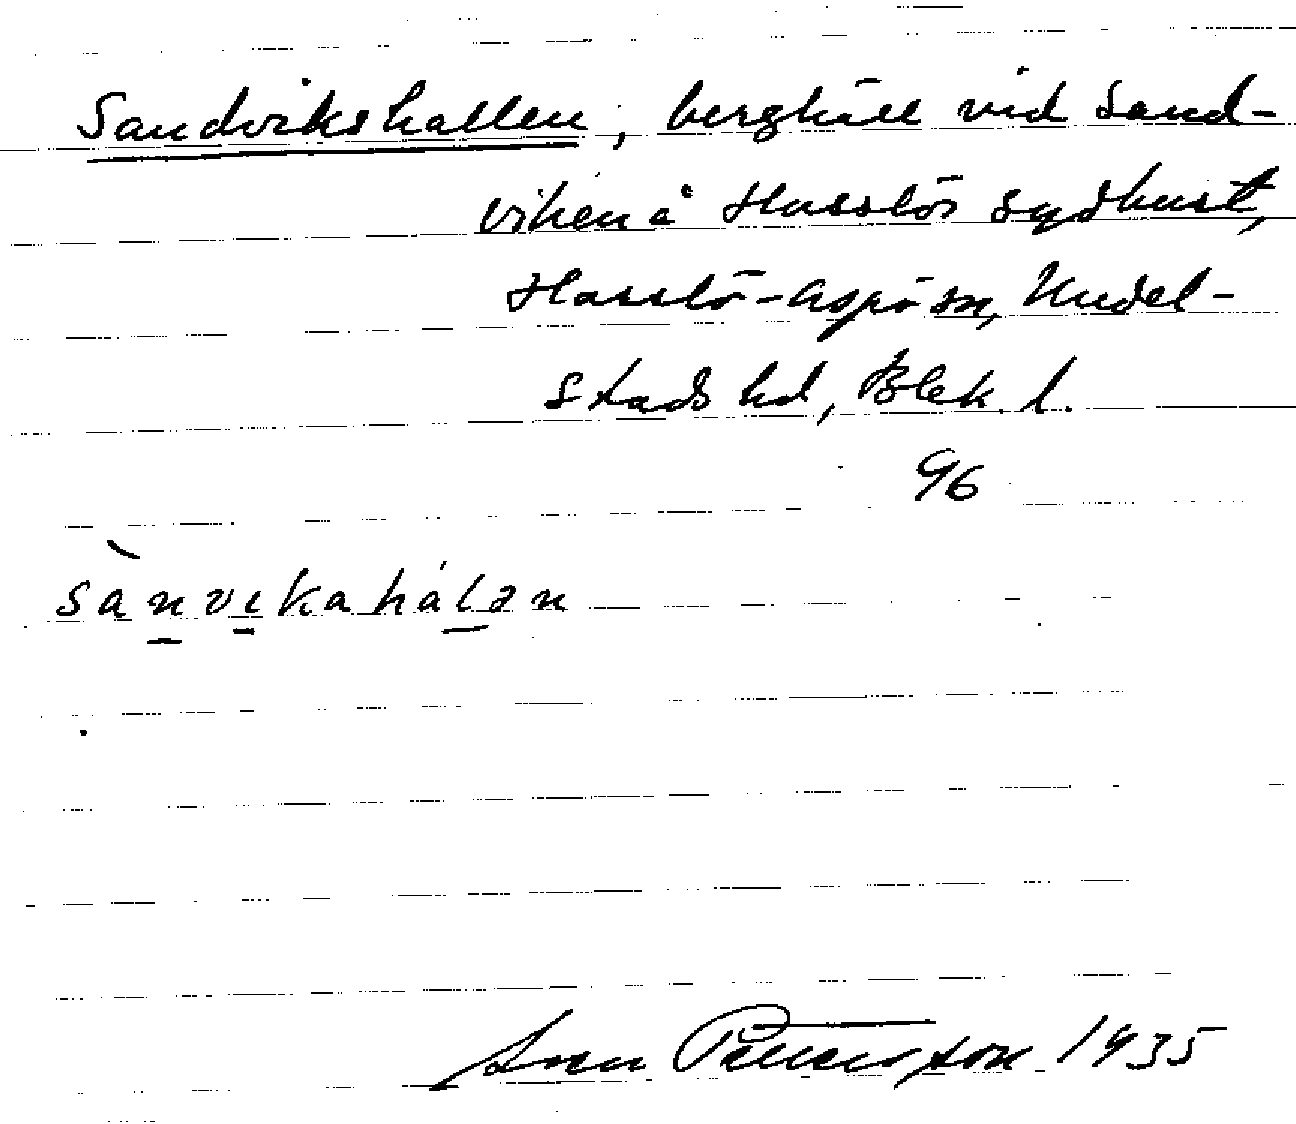 Sandvikshallen, berghäll vid Sand-
viken å Hasslös sydkust,
Hasslö-Aspö sn, Medel-
stads hd, Blek. l.
96
sànvikahálən
Sven Petersson 1935